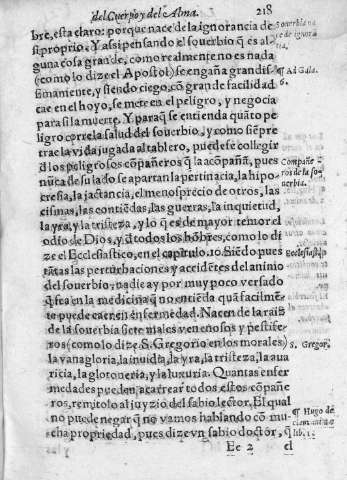 del Cuerpo y del Alma. 218
bre, esta claro: porque nace de la ignorancia de
si proprio. Y assi pensando el souerbio q̃ es al-
guna cosa grande, como realmente no es nada
(como lo dize el Apostol) se engaña grandis-
simamente, y siendo ciego, cõ grande facilidad
cae en el hoyo, se mete en el peligro, y negocia
para si la muerte. Y paraq̃ se entienda quãto pe-
ligro corre la salud del souerbio, y como siẽpre
trae la vida jugada al tablero, puede se collegir
d̃ los peligrosos cõpañeros q̃ la acõpañã, pues
nũca de su lado se apartan la pertinacia, la hipo-
cresia, la jactancia, el menosprecio de otros, las
cismas, las contiẽdas, las guerras, la inquietud,
la yra, y la tristeza, y lo q̃ es de mayor temor el
odio de Dios, y d̃ todos los hõbres, como lo di
ze el Ecclesiastico, en el capitulo. 10. Siẽdo pues
tãtas las perturbaciones y accidẽtes del animo
del souerbio, nadie ay por muy poco versado
q̃ sea en la medicina q̃ no entiẽda quã facilmẽ-
te puede caer en enfermedad. Nacen de la raiz
de la souerbia siete males venenosos y pestife-
ros (como lo dize S. Gregorio en los morales)
la vanagloria, la inuidia, la yra, la tristeza, la aua
ricia, la glotoneria, y la luxuria. Quantas enfer
medades puedan acarrear todos estos cõpañe-
ros, remitolo al juyzio del sabio lector. El qual
no puede negar q̃ no vamos hablando cõ mu-
cha propriedad, pues dize vn sabio doctor, q̃
Ee 2 el
Souerbia na
ce de ignorã
cia.
¶ Ad Gala.
6.
Compañe
ros de la so
uerbia.
Ecclesiast. 10
S. Gregor.
¶ Hugo de
lib. 1.